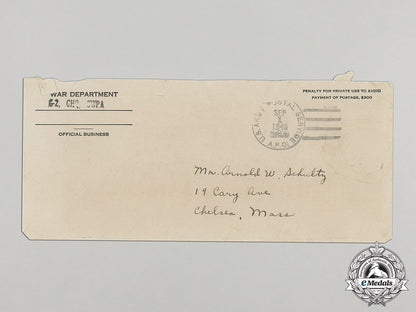 WAR DEPARTMENT
G-2, GHQ, SWPA
OFFICIAL BUSINESS
PENALTY FOR PRIVATE USE TO AVOID
PAYMENT OF POSTAGE, $300
U.S. ARMY POSTAL SERVICE
SEP
1
1945
A.P.O.
Mr. Arnold W. Schultz
19 Cary Ave
Chelsea, Mass
eMedals